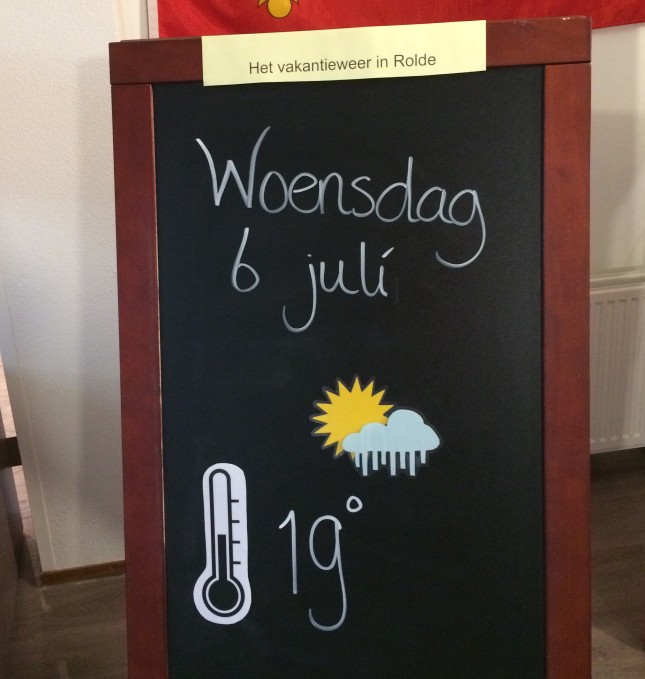 Het vakantieweer in Rolde
Woensdag
6 juli
19°